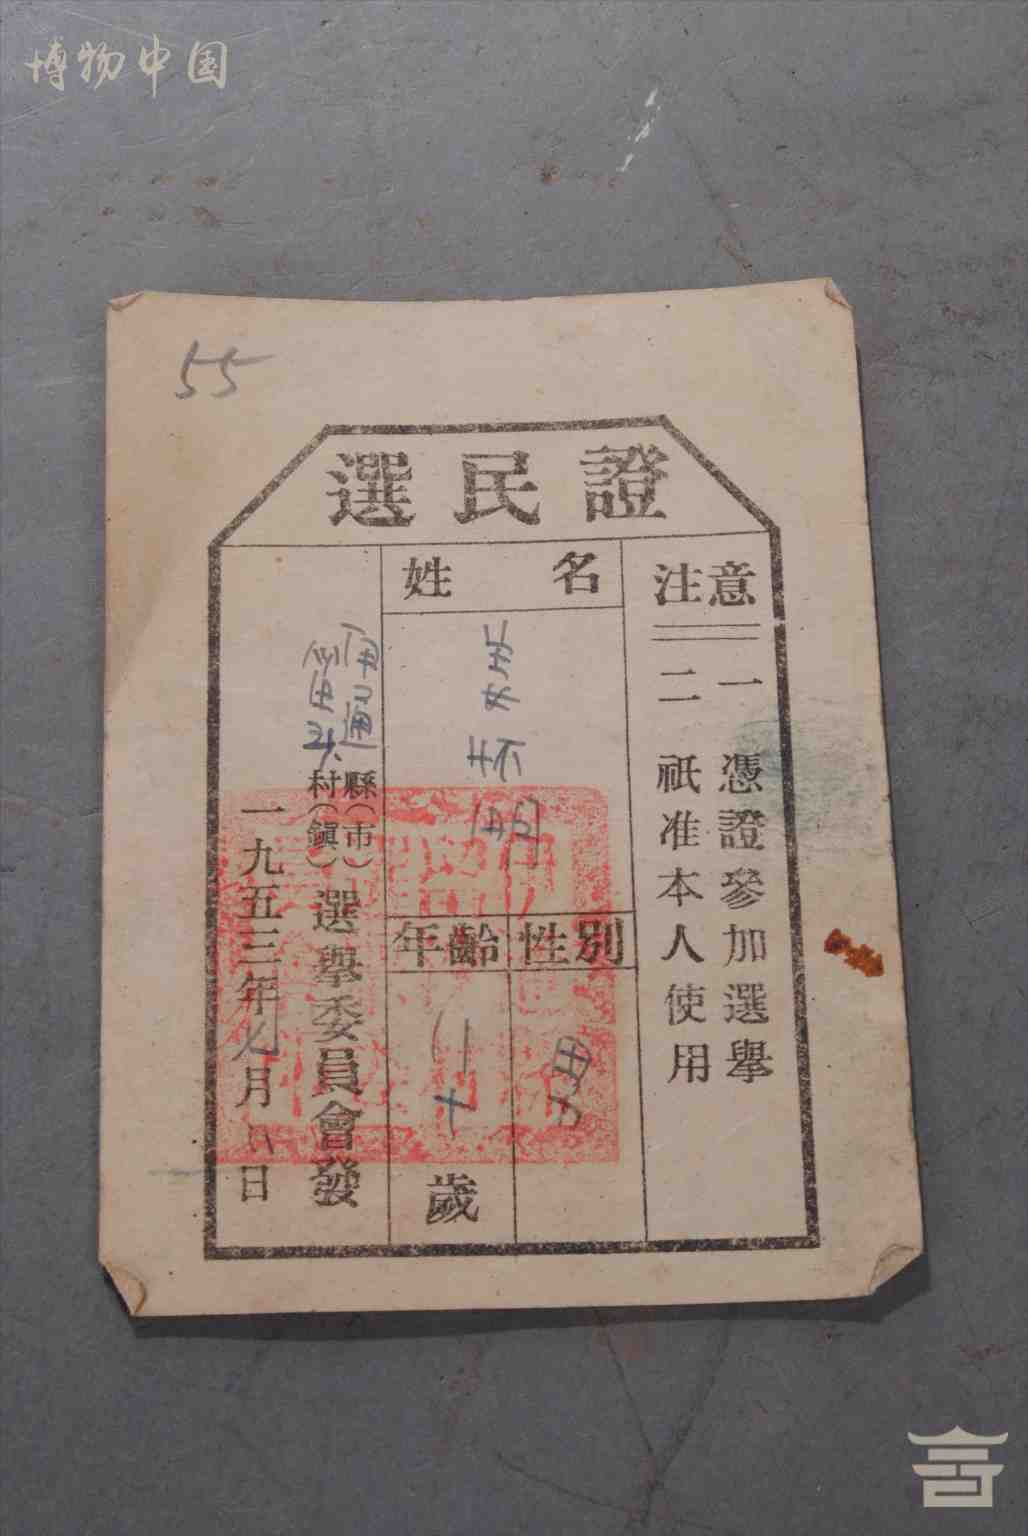 博物中国
55
選民證
注意
一 憑證參加選舉
二 祇准本人使用
姓名
性別
男
年齡
十
歲
通縣(市)
村(鎮)選舉委員會發
一九五三年七月八日